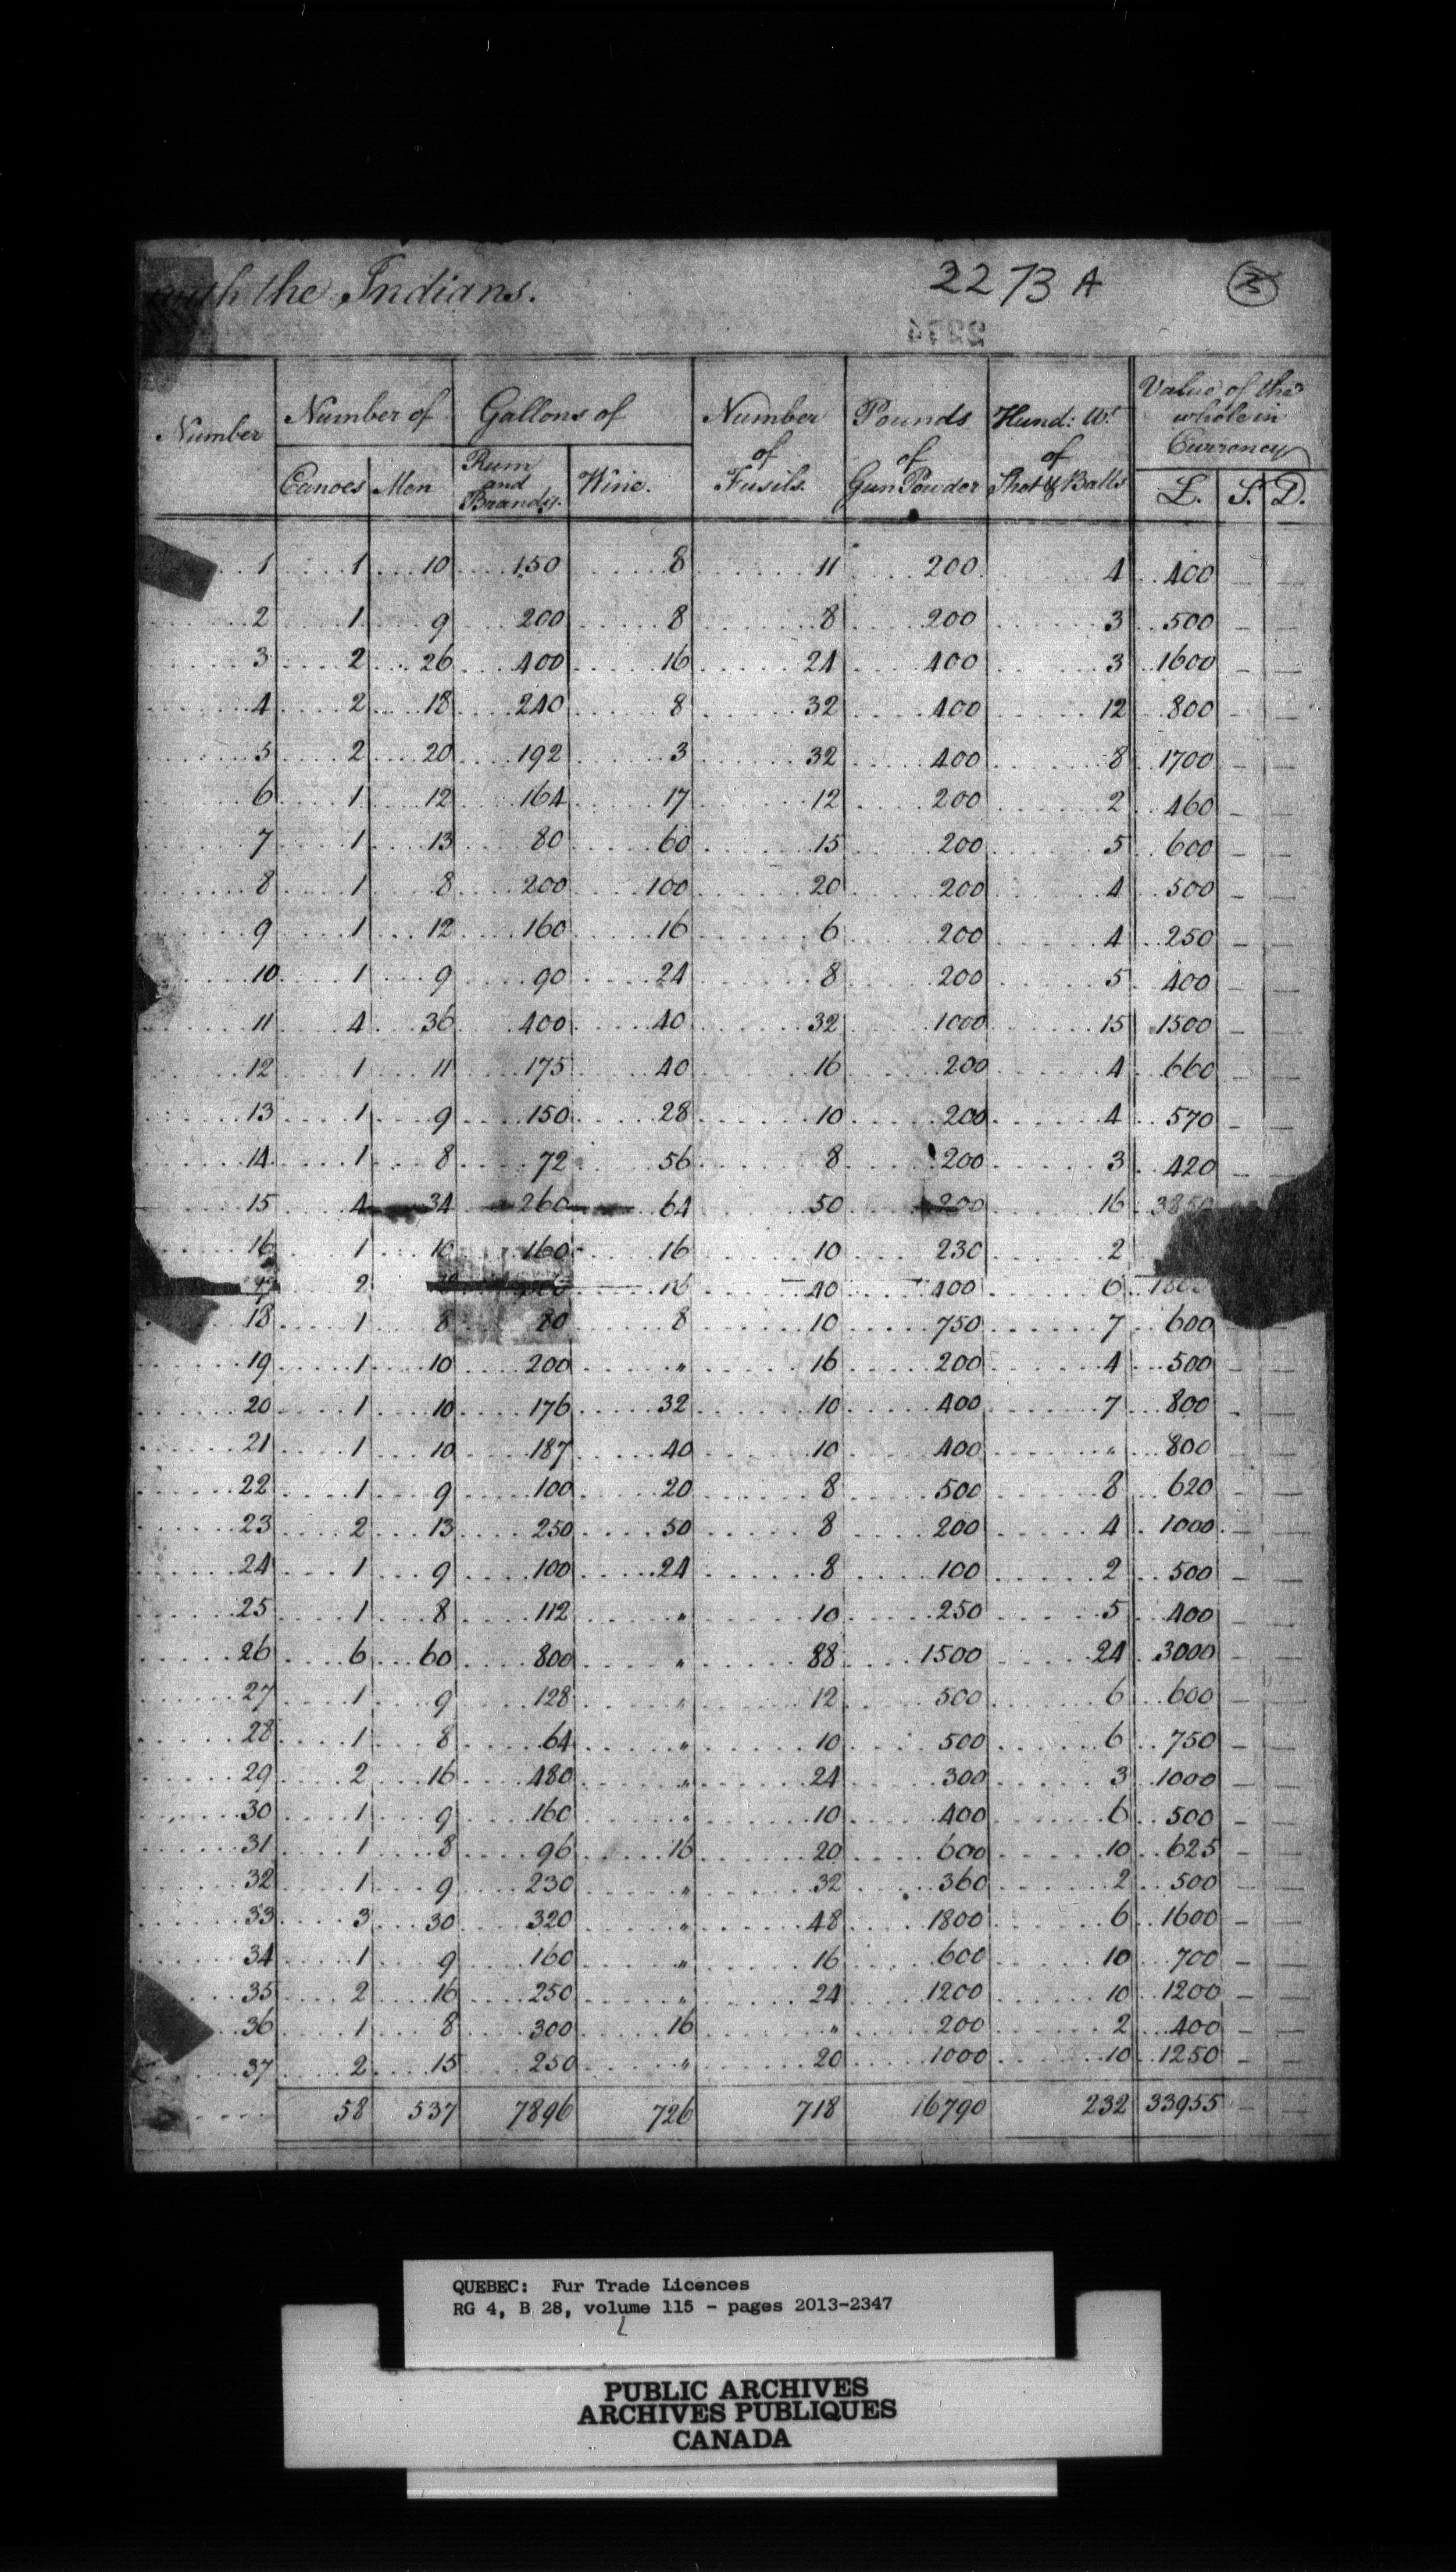 with the Indians.
2273 A
2274
Number Number of Gallons of Number of Fusils. Pounds of Gun Powder Hund: Wt. of Shot & Balls Value of the whole in Currency
Canoes Men Rum and Brandy. Wine. £. S. D.
1 1 10 150 8 11 200 4 400 – –
2 1 9 200 8 8 200 3 500 – –
3 2 26 400 16 24 400 3 1600 – –
4 2 18 240 8 32 400 12 800 – –
5 2 20 192 3 32 400 8 1700 – –
6 1 12 164 17 12 200 2 460 – –
7 1 13 80 60 15 200 5 600 – –
8 1 8 200 100 20 200 4 500 – –
9 1 12 160 16 6 200 4 250 – –
10 1 9 90 24 8 200 5 400 – –
11 4 36 400 40 32 1000 15 1500 – –
12 1 11 175 40 16 200 4 660 – –
13 1 9 150 28 10 200 4 570 – –
14 1 8 72 56 8 200 3 420 – –
15 4 34 260 64 50 200 16 3850
16 1 10 160 16 10 230 2
2 16 40 400 6
18 1 8 80 8 10 750 7 600 –
19 1 10 200 " 16 200 4 500 – –
20 1 10 176 32 10 400 7 800 – –
21 1 10 187 40 10 400 " 800 – –
22 1 9 100 20 8 500 8 620 – –
23 2 13 250 50 8 200 4 1000 – –
24 1 9 100 24 8 100 2 500 – –
25 1 8 112 " 10 250 5 400 – –
26 6 60 800 " 88 1500 24 3000 – –
27 1 9 128 " 12 500 6 600 – –
28 1 8 64 " 10 500 6 750 – –
29 2 16 480 " 24 300 3 1000 – –
30 1 9 160 " 10 400 6 500 – –
31 1 8 96 16 20 600 10 625 – –
32 1 9 230 " 32 360 2 500 – –
33 3 30 320 " 48 1800 6 1600 – –
34 1 9 160 " 16 600 10 700 – –
35 2 16 250 " 24 1200 10 1200 – –
36 1 8 300 16 " 200 2 400 – –
37 2 15 250 " 20 1000 10 1250 – –
58 537 7896 726 718 16790 232 33955 – –
QUEBEC: Fur Trade Licences
RG 4, B 28, volume 115 - pages 2013-2347
PUBLIC ARCHIVES
ARCHIVES PUBLIQUES
CANADA